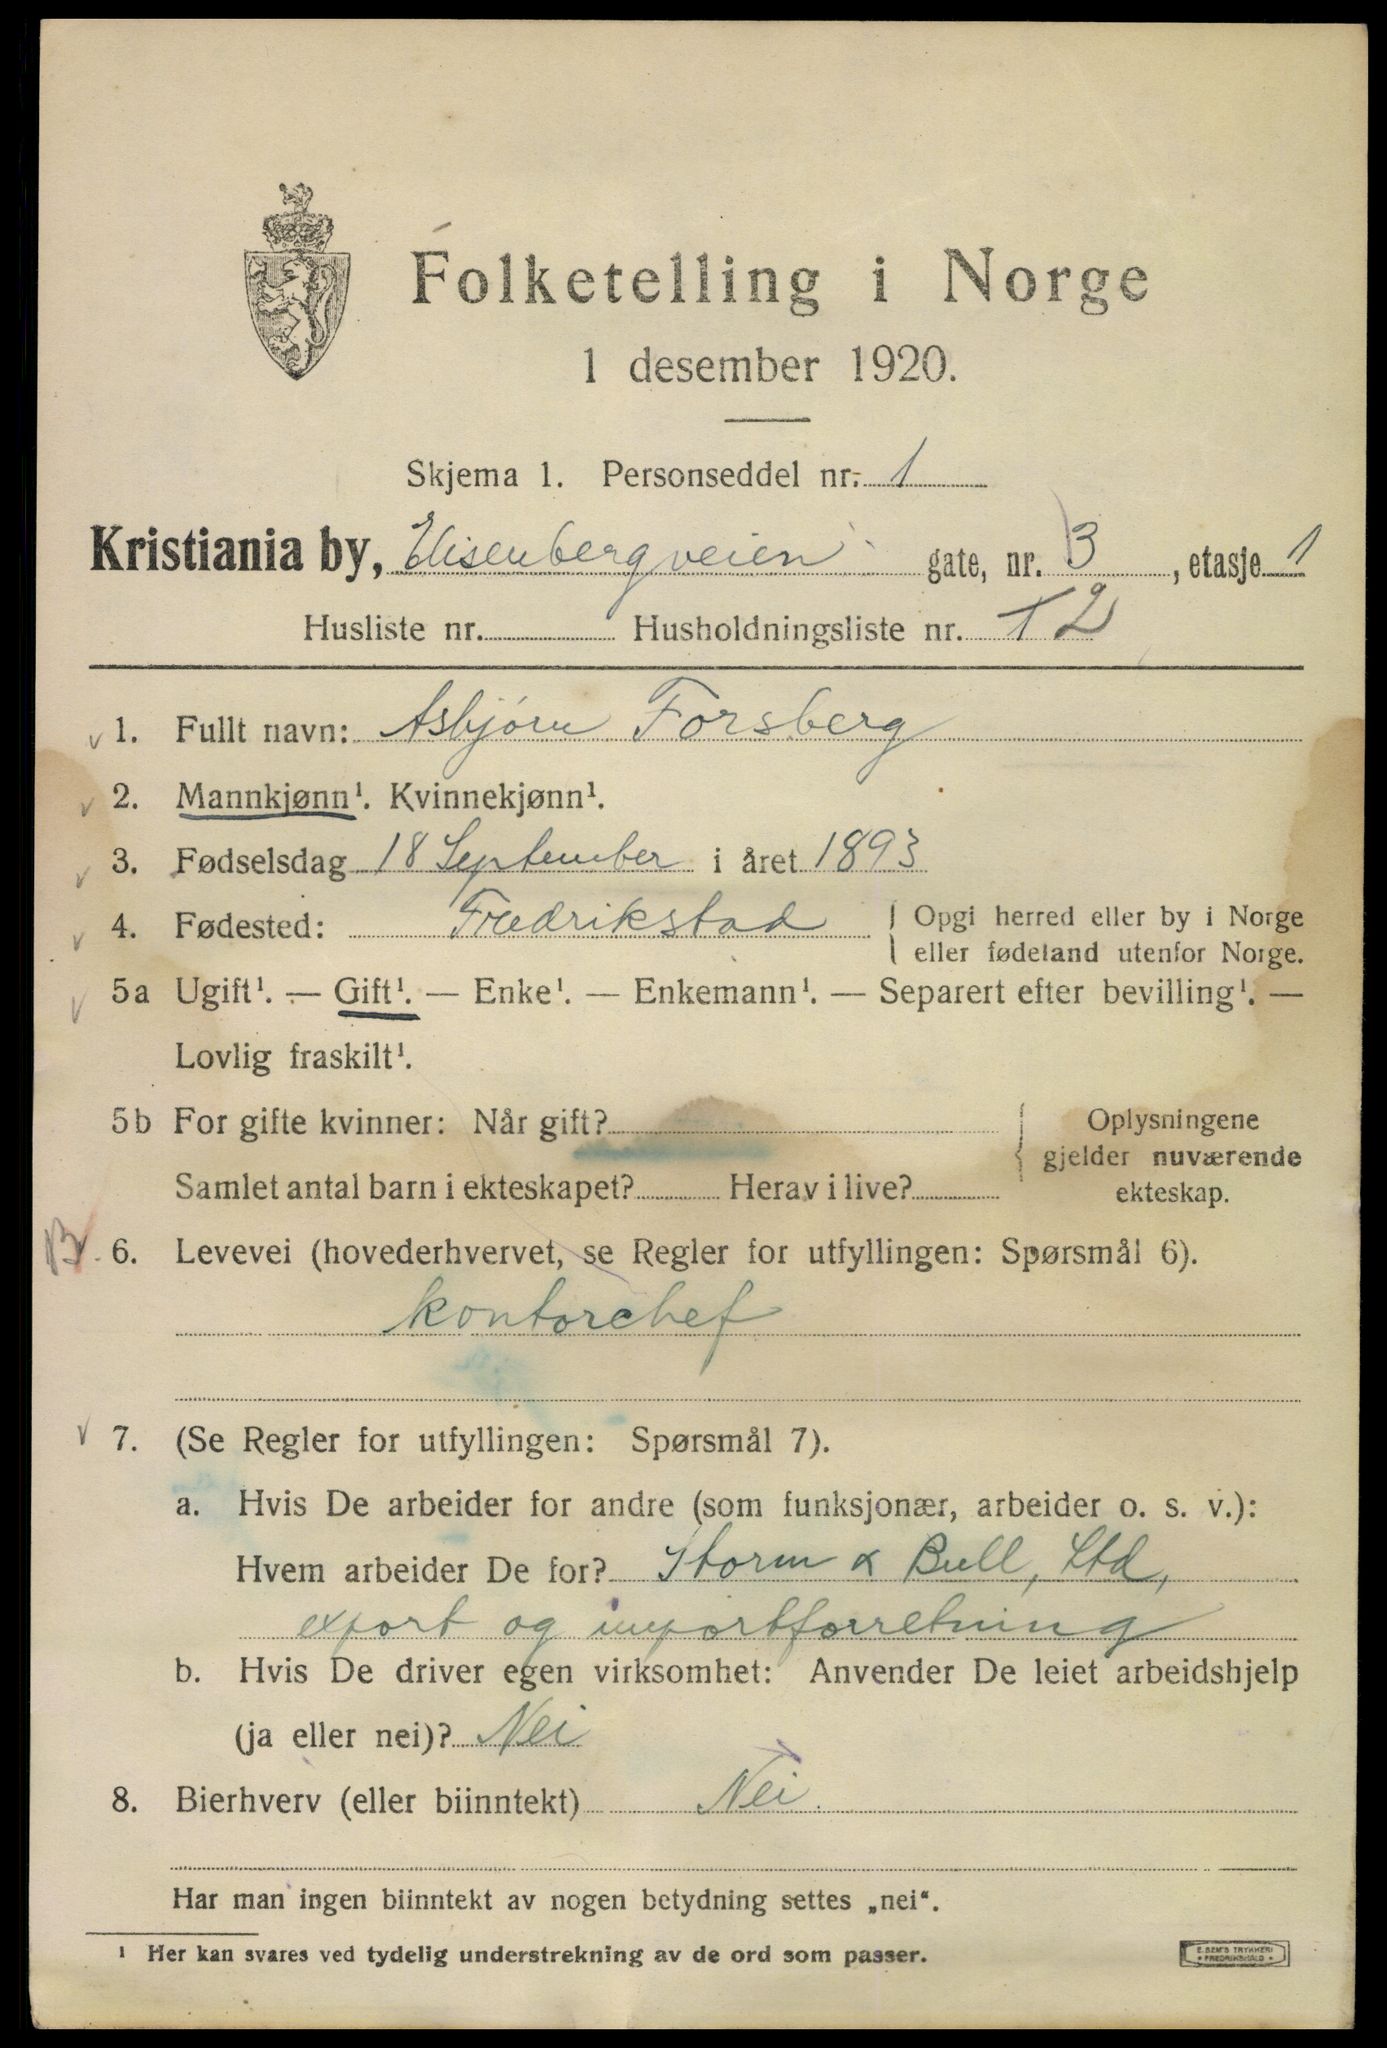 Folketelling i Norge
1 desember 1920.
Skjema 1. Personseddel nr. 1
Kristiania by, Elisenbergveien gate, nr. 3, etasje 1
Husliste nr. Husholdningsliste nr. 1 2
1. Fullt navn: Asbjørn Forsberg
2. Mannkjønn¹. Kvinnekjønn¹.
3. Fødselsdag 18 September i året 1893
4. Fødested: Fredrikstad Opgi herred eller by i Norge
eller fødeland utenfor Norge.
5a Ugift¹. — Gift¹. — Enke¹. — Enkemann¹. — Separert efter bevilling¹. —
Lovlig fraskilt¹.
5b For gifte kvinner: Når gift?
Samlet antal barn i ekteskapet? Herav i live?
Oplysningene
gjelder nuværende
ekteskap.
B. 6. Levevei (hovederhvervet, se Regler for utfyllingen: Spørsmål 6).
kontorchef
7. (Se Regler for utfyllingen: Spørsmål 7).
a. Hvis De arbeider for andre (som funksjonær, arbeider o. s. v.):
Hvem arbeider De for? Storm & Bull, Ltd,
export og importforretning
b. Hvis De driver egen virksomhet: Anvender De leiet arbeidshjelp
(ja eller nei)? Nei
8. Bierhverv (eller biinntekt) Nei.
Har man ingen biinntekt av nogen betydning settes „nei“.
¹ Her kan svares ved tydelig understrekning av de ord som passer.
E. SEM'S TRYKKERI
• FREDRIKSHALD •